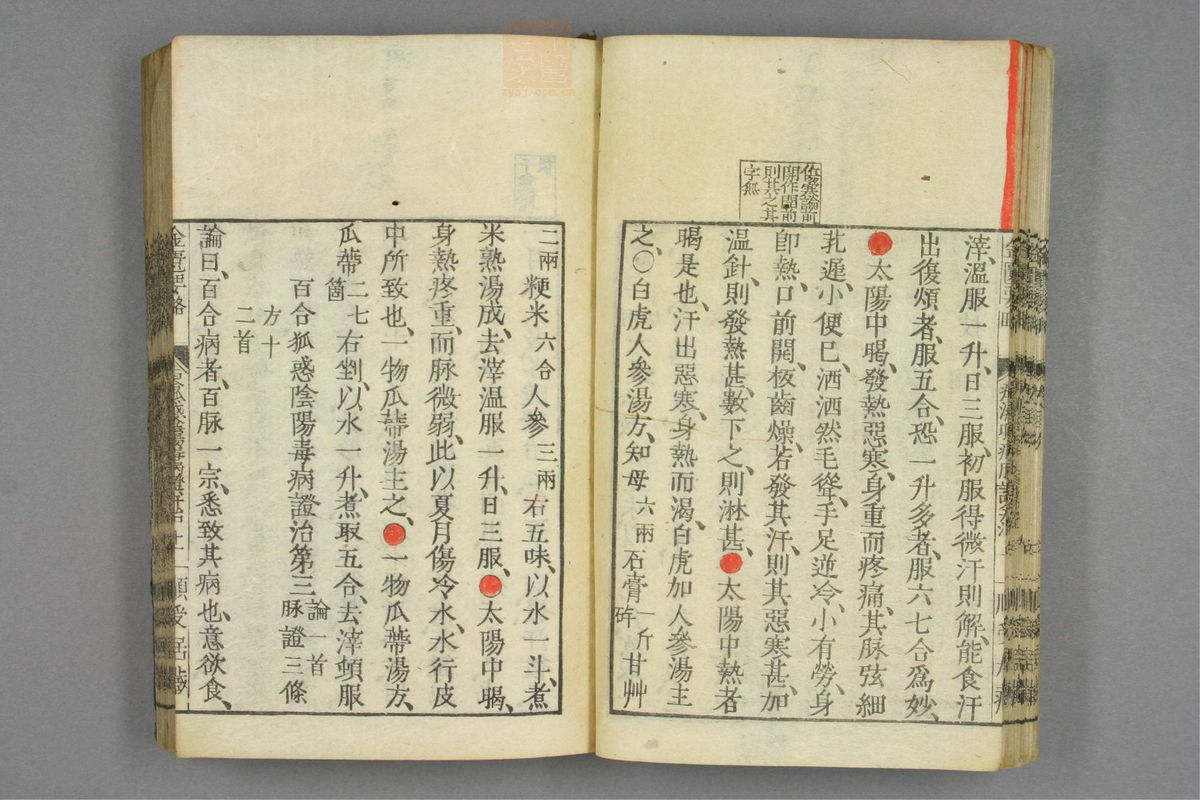 傷寒論前
開作開前
則其之其
字無
滓、溫服一升、日三服、初服得微汗則解、能食汗
出復煩者、服五合、恐一升多者、服六七合爲妙、
●太陽中暍、發熱惡寒、身重而疼痛、其脉弦細
芤遲、小便已、洒洒然毛聳、手足逆冷、小有勞、身
卽熱、口前開、板齒燥、若發其汗、則其惡寒甚、加
溫針、則發熱甚、數下之、則淋甚、●太陽中熱者
暍是也、汗出惡寒、身熱而渴、白虎加人參湯主
之、○白虎人參湯方、知母六兩石膏一斤碎甘艸
二兩粳米六合人參三兩右五味、以水一斗、煮
米熟湯成、去滓溫服一升、日三服、●太陽中暍、
身熱疼重、而脉微弱、此以夏月傷冷水、水行皮
中所致也、一物瓜蔕湯主之、●一物瓜蔕湯方、
瓜蔕二七箇右剉、以水一升、煮取五合、去滓頓服
百合狐惑陰陽毒病證治第三論一首脉證三條
方十二首
論曰、百合病者、百脉一宗、悉致其病也、意欲食、